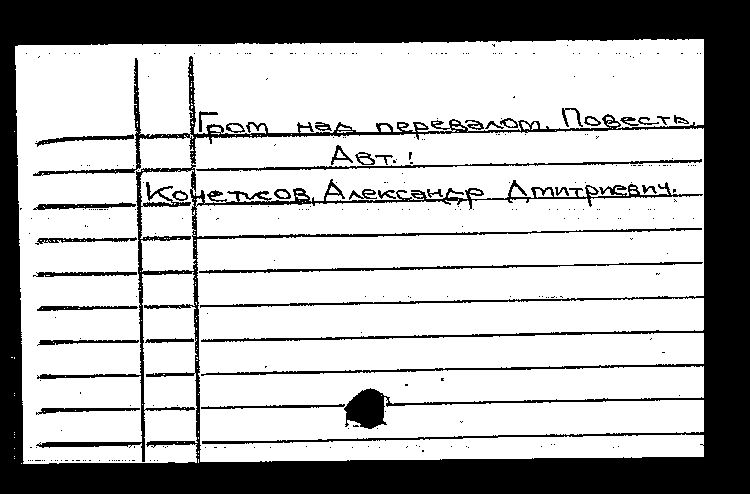 Гром над перевалом. Повесть.
Авт.:
Конетков, Александр Дмитриевич.